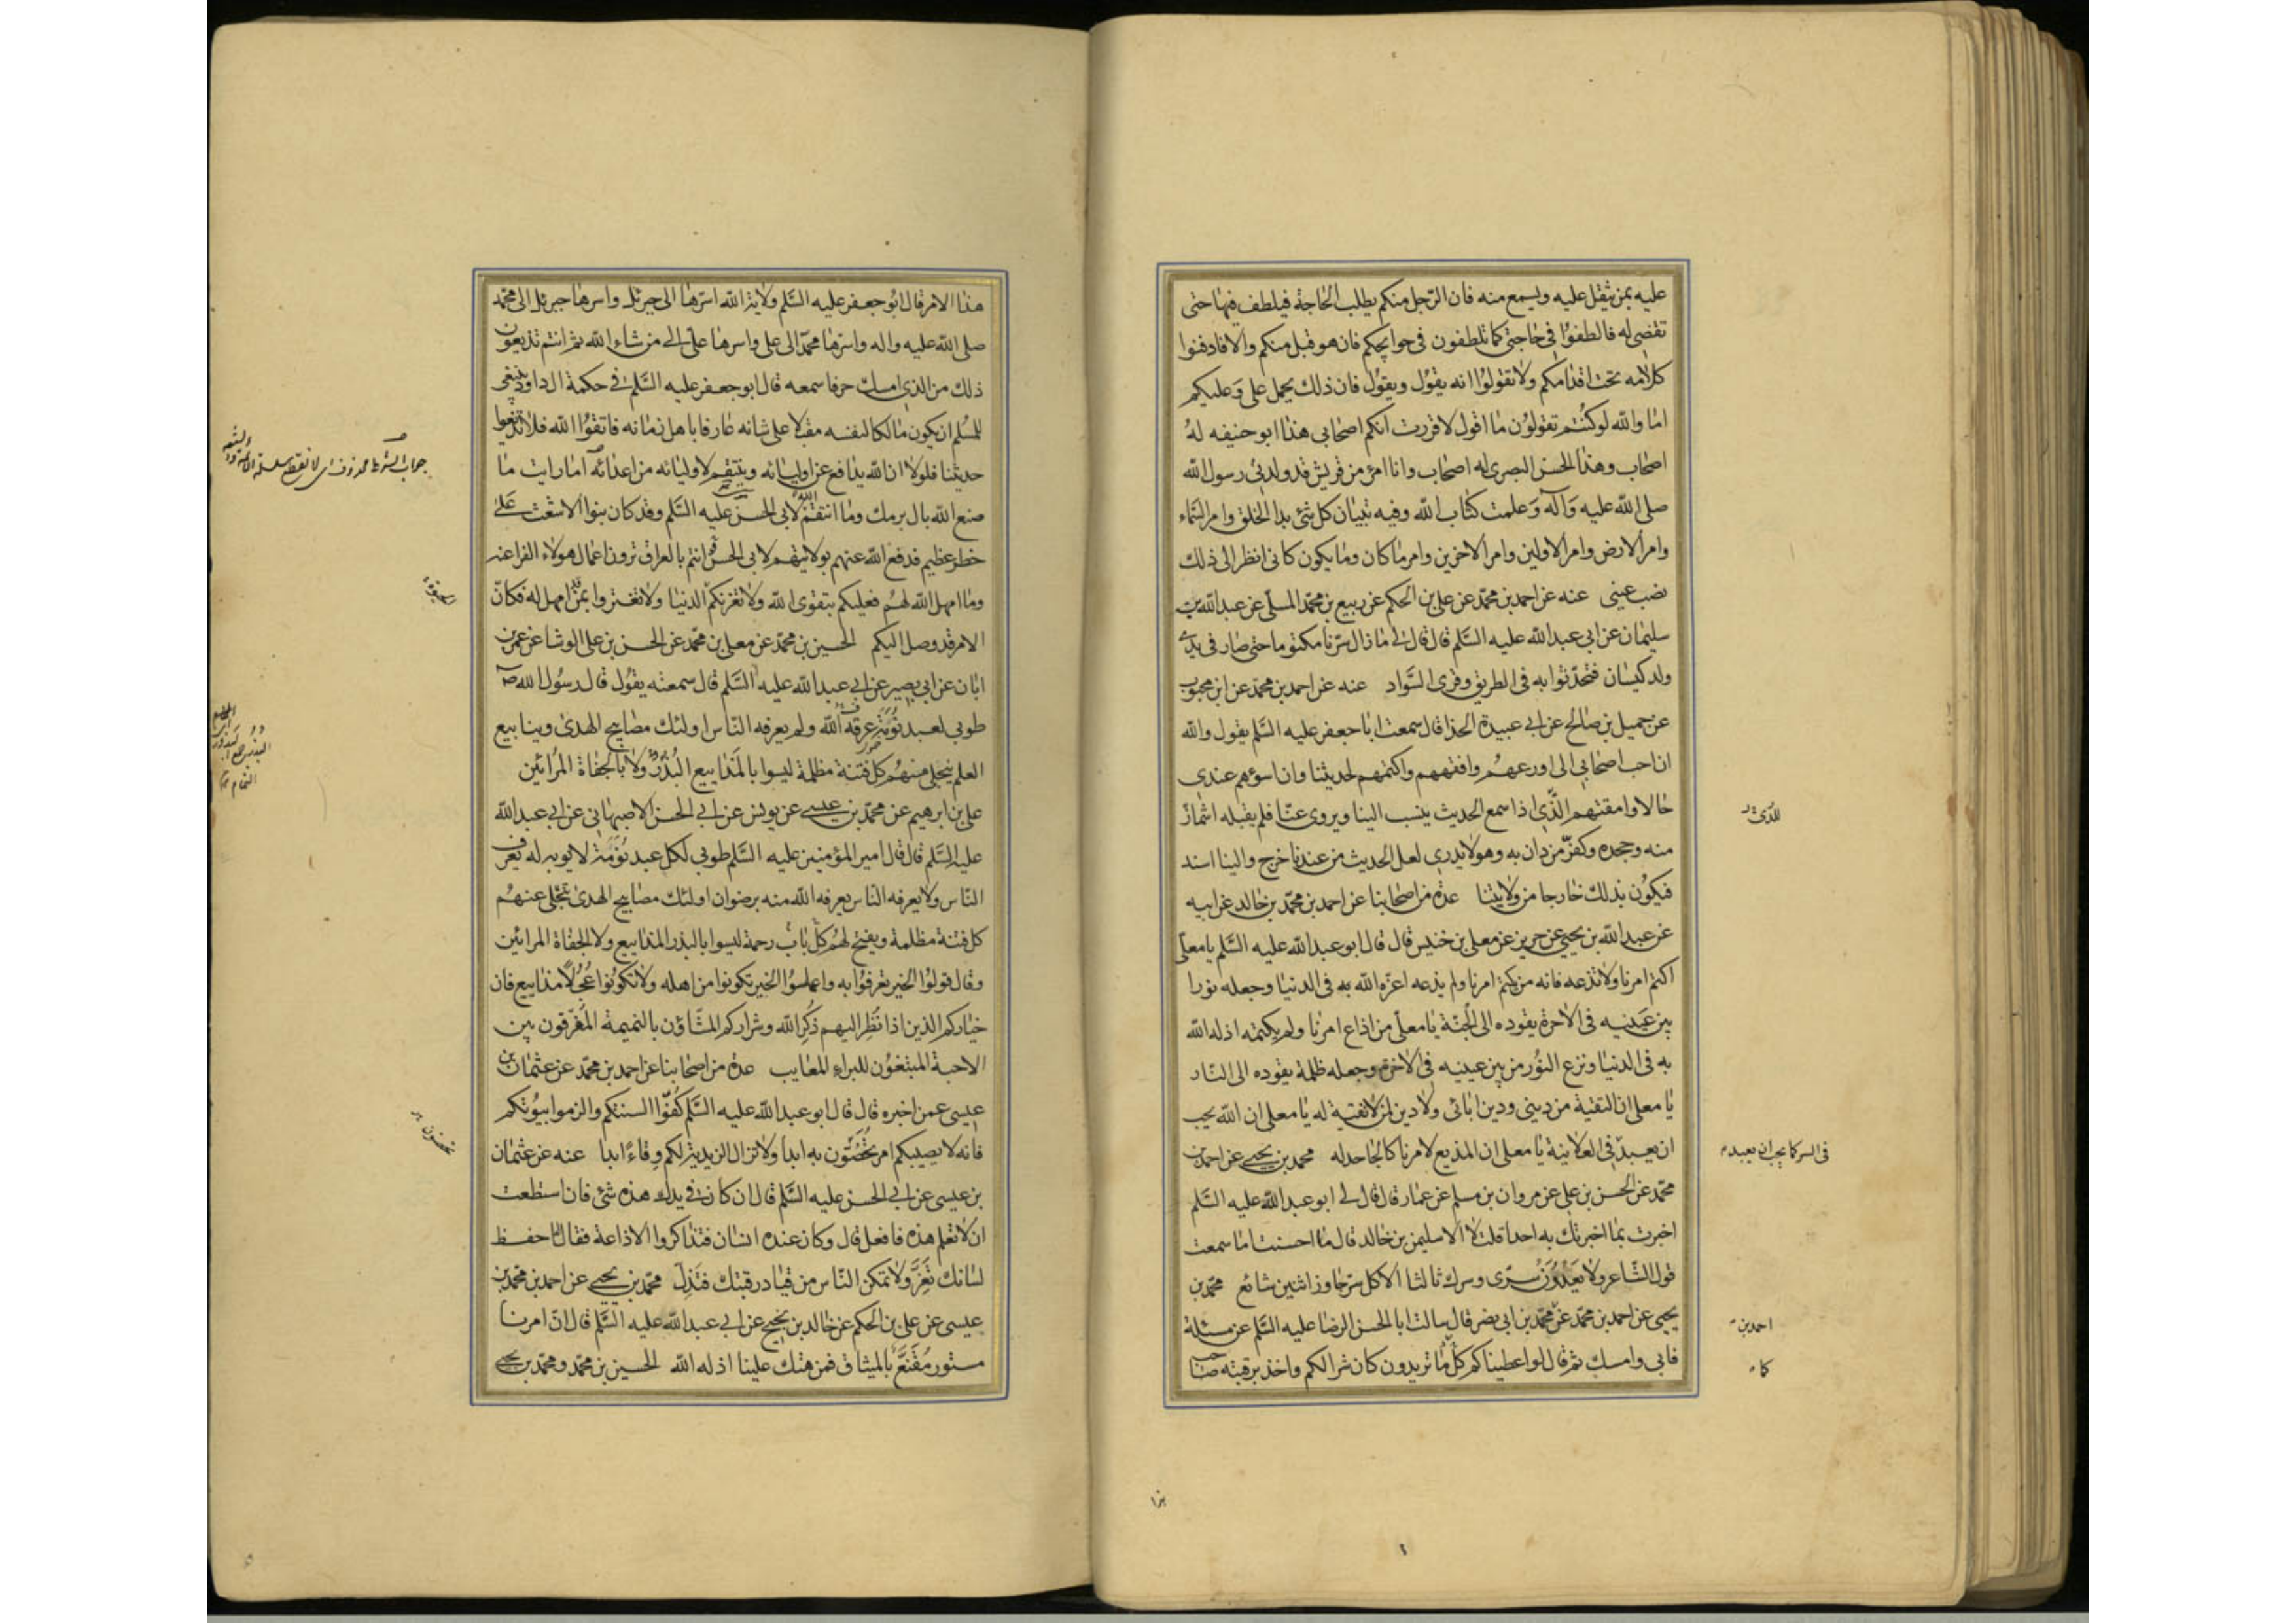 عليه بمن يثقل عليه ويسمع منه فان الرّجل منكم يطلب الحاجة فيلطف فيها حتى
تقضى له فالطفوا في حاجتي كما تلطفون في حوايجكم فان هو قبل منكم والا فادفنوا
كلامه تحت اقدامكم ولا تقولوا انه يقول ويقول فان ذلك يحمل علي وعليكم
اما والله لو كنتم تقولون ما اقول لاقررت انكم اصحابي هذا ابو حنيفه له
اصحاب وهذا الحسن البصري له اصحاب وانا امرؤ من قريش قد ولدني رسول الله
صلى الله عليه وآله وعلمت كتاب الله وفيه تبيان كل شئ بدا الخلق وامر السّماء
وامر الارض وامر الاولين وامر الاخرين وامر ما كان وما يكون كاني انظر الى ذلك
نصب عيني عنه عن احمد بن محمّد عن علي بن الحكم عن ربيع بن محمّد المسلّي عن عبد الله بن
سليمان عن ابي عبد الله عليه السَّلم قال قال لي ما زال سرّنا مكتوما حتى صار في يدي
ولد كيسان فتحدّثوا به في الطريق وقرى السّواد عنه عن احمد بن محمّد عن ابن محبوب
عن جميل بن صالح عن ابي عبيدة الحذا قال سمعت ابا جعفر عليه السَّلم يقول والله
ان احب اصحابي الي اورعهم وافقههم واكتمهم لحديثنا وان اسوءهم عندي
حالا وامقتهم الَّذي اذا سمع الحديث ينسب الينا ويروى عنّا فلم يقبله اشمأزّ
منه وجحده وكفّر من دان به وهو لا يدري لعل الحديث من عندنا خرج والينا اسند
فيكون بذلك خارجا من ولايتنا عدة من اصحابنا عن احمد بن محمّد بن خالد عن ابيه
عن عبد الله بن يحيى عن حريز عن معلى بن خنيس قال قال ابو عبد الله عليه السَّلم يا معلّى
اكتم امرنا ولا تذعه فانه من كتم امرنا ولم يذعه اعزّه الله به في الدنيا وجعله نورا
بين عينيه في الاخرة يقوده الى الجنّة يا معلّى من اذاع امرنا ولم يكتمه اذله الله
به في الدنيا ونزع النّور من بين عينيه في الاخرة وجعله ظلمة يقوده الى النّار
يا معلى ان التقية من ديني ودين ابائي ولا دين لمن لا تقية له يا معلى ان الله يحب
ان يعبد في العلانية يا معلى ان المذيع لامرنا كالجاحد له محمد بن يحيى عن احمد بن
محمّد عن الحسن بن علي عن مروان بن مسلم عن عمار قال قال لي ابو عبد الله عليه السَّلم
اخبرت بما اخبرتك به احدا قلت لا الا سليمن بن خالد قال ما احسنت اما سمعت
قول الشّاعر ولا يعدون سرّى وسرك ثالثا الا كل سرّ جاوز اثنين شائع محمّد بن
يحيى عن احمد بن محمّد عن محمّد بن ابي نصر قال سالت ابا الحسن الرضا عليه السَّلم عن مسئلة
فابى وامسك ثم قال لو اعطيناكم كلّ ما تريدون كان شرا لكم واخذ برقبته صاحب
الذي
في السر كما يحب ان يعبد
احمد بن
كما
هذا
هذا الامر قال ابو جعفر عليه السَّلم ولاية الله اسرّها الى جبرئل واسرها جبرئل الى محمّد
صلى الله عليه واله واسرّها محمّد الى علي واسرها علي الى من شاء الله ثم انتم تذيعون
ذلك من الذي امسك حرفا سمعه قال ابو جعفر عليه السَّلم في حكمة ال داود ينبغى
للمسلم ان يكون مالكا لنفسه مقبلا على شانه عارفا باهل زمانه فاتقوا الله فلا تذيعوا
حديثنا فلولا ان الله يدافع عن اوليائه وينتقم لاوليائه من اعدائه اما رايت ما
صنع الله بال برمك وما انتقم الله لابي الحسن عليه السَّلم وقد كان بنوا الاشعث على
خطر عظيم فدفع الله عنهم بولايتهم لابي الحسن انتم بالعراق ترون اعمال هولاء الفراعنه
وما امهل الله لهم فعليكم بتقوى الله ولا تغرنكم الدنيا ولا تغتروا بمن قد امهل له فكانّ
الامر قد وصل اليكم الحسين بن محمّد عن معلى بن محمّد عن الحسن بن علي الوشا عن عمر بن
ابان عن ابي بصير عن ابي عبد الله عليه السَّلم قال سمعته يقول قال رسول الله ص
طوبى لعبد نُوَمَة عرفه الله ولم يعرفه النّاس اولئك مصابيح الهدى وينابيع
العلم ينجلي عنهم كل فتنة مظلمة ليسوا بالمذاييع البُذُر ولا بالجفاة المرائين
علي بن ابرهيم عن محمّد بن عيسى عن يونس عن ابي الحسن الاصبهاني عن ابي عبد الله
عليه السَّلم قال قال امير المؤمنين عليه السَّلم طوبى لكل عبد نُوَمَة لا يوبه له يعرف
النّاس ولا يعرفه النّاس يعرفه الله منه برضوان اولئك مصابيح الهدى تنجلى عنهم
كل فتنة مظلمة ويفتح لهم كلّ باب رحمة ليسوا بالبذر المذاييع ولا الجفاة المرائين
وقال قولوا الخير تعرفوا به واعملوا الخير تكونوا من اهله ولا تكونوا عُجُلًا مذاييع فان
خياركم الذين اذا نُظِر اليهم ذُكِر الله وشراركم المشّاؤن بالنميمة المُفَرّقون بين
الاحبة المبتغون للبراء المعايب عدة من اصحابنا عن احمد بن محمّد عن عثمان بن
عيسى عمن اخبره قال قال ابو عبد الله عليه السَّلم كُفّوا السنتكم والزموا بيوتكم
فانه لا يصيبكم امر تخُصُّون به ابدا ولا تزال الزيدية لكم وِقاءً ابدا عنه عن عثمان
بن عيسى عن ابي الحسن عليه السَّلم قال ان كان في يدك هذه شئ فان استطعت
ان لا تعلم هذه فافعل قال وكان عنده انسان فتذاكروا الاذاعة فقال احفظ
لسانك تُعَزَّ ولا تمكن النّاس من قياد رقبتك فتَذِلّ محمّد بن يحيى عن احمد بن محمّد بن
عيسى عن علي بن الحكم عن خالد بن نجيح عن ابي عبد الله عليه السَّلم قال انّ امرنا
مستور مُقَنَّع بالميثاق فمن هتك علينا اذله الله الحسين بن محمّد ومحمّد بن يحيى